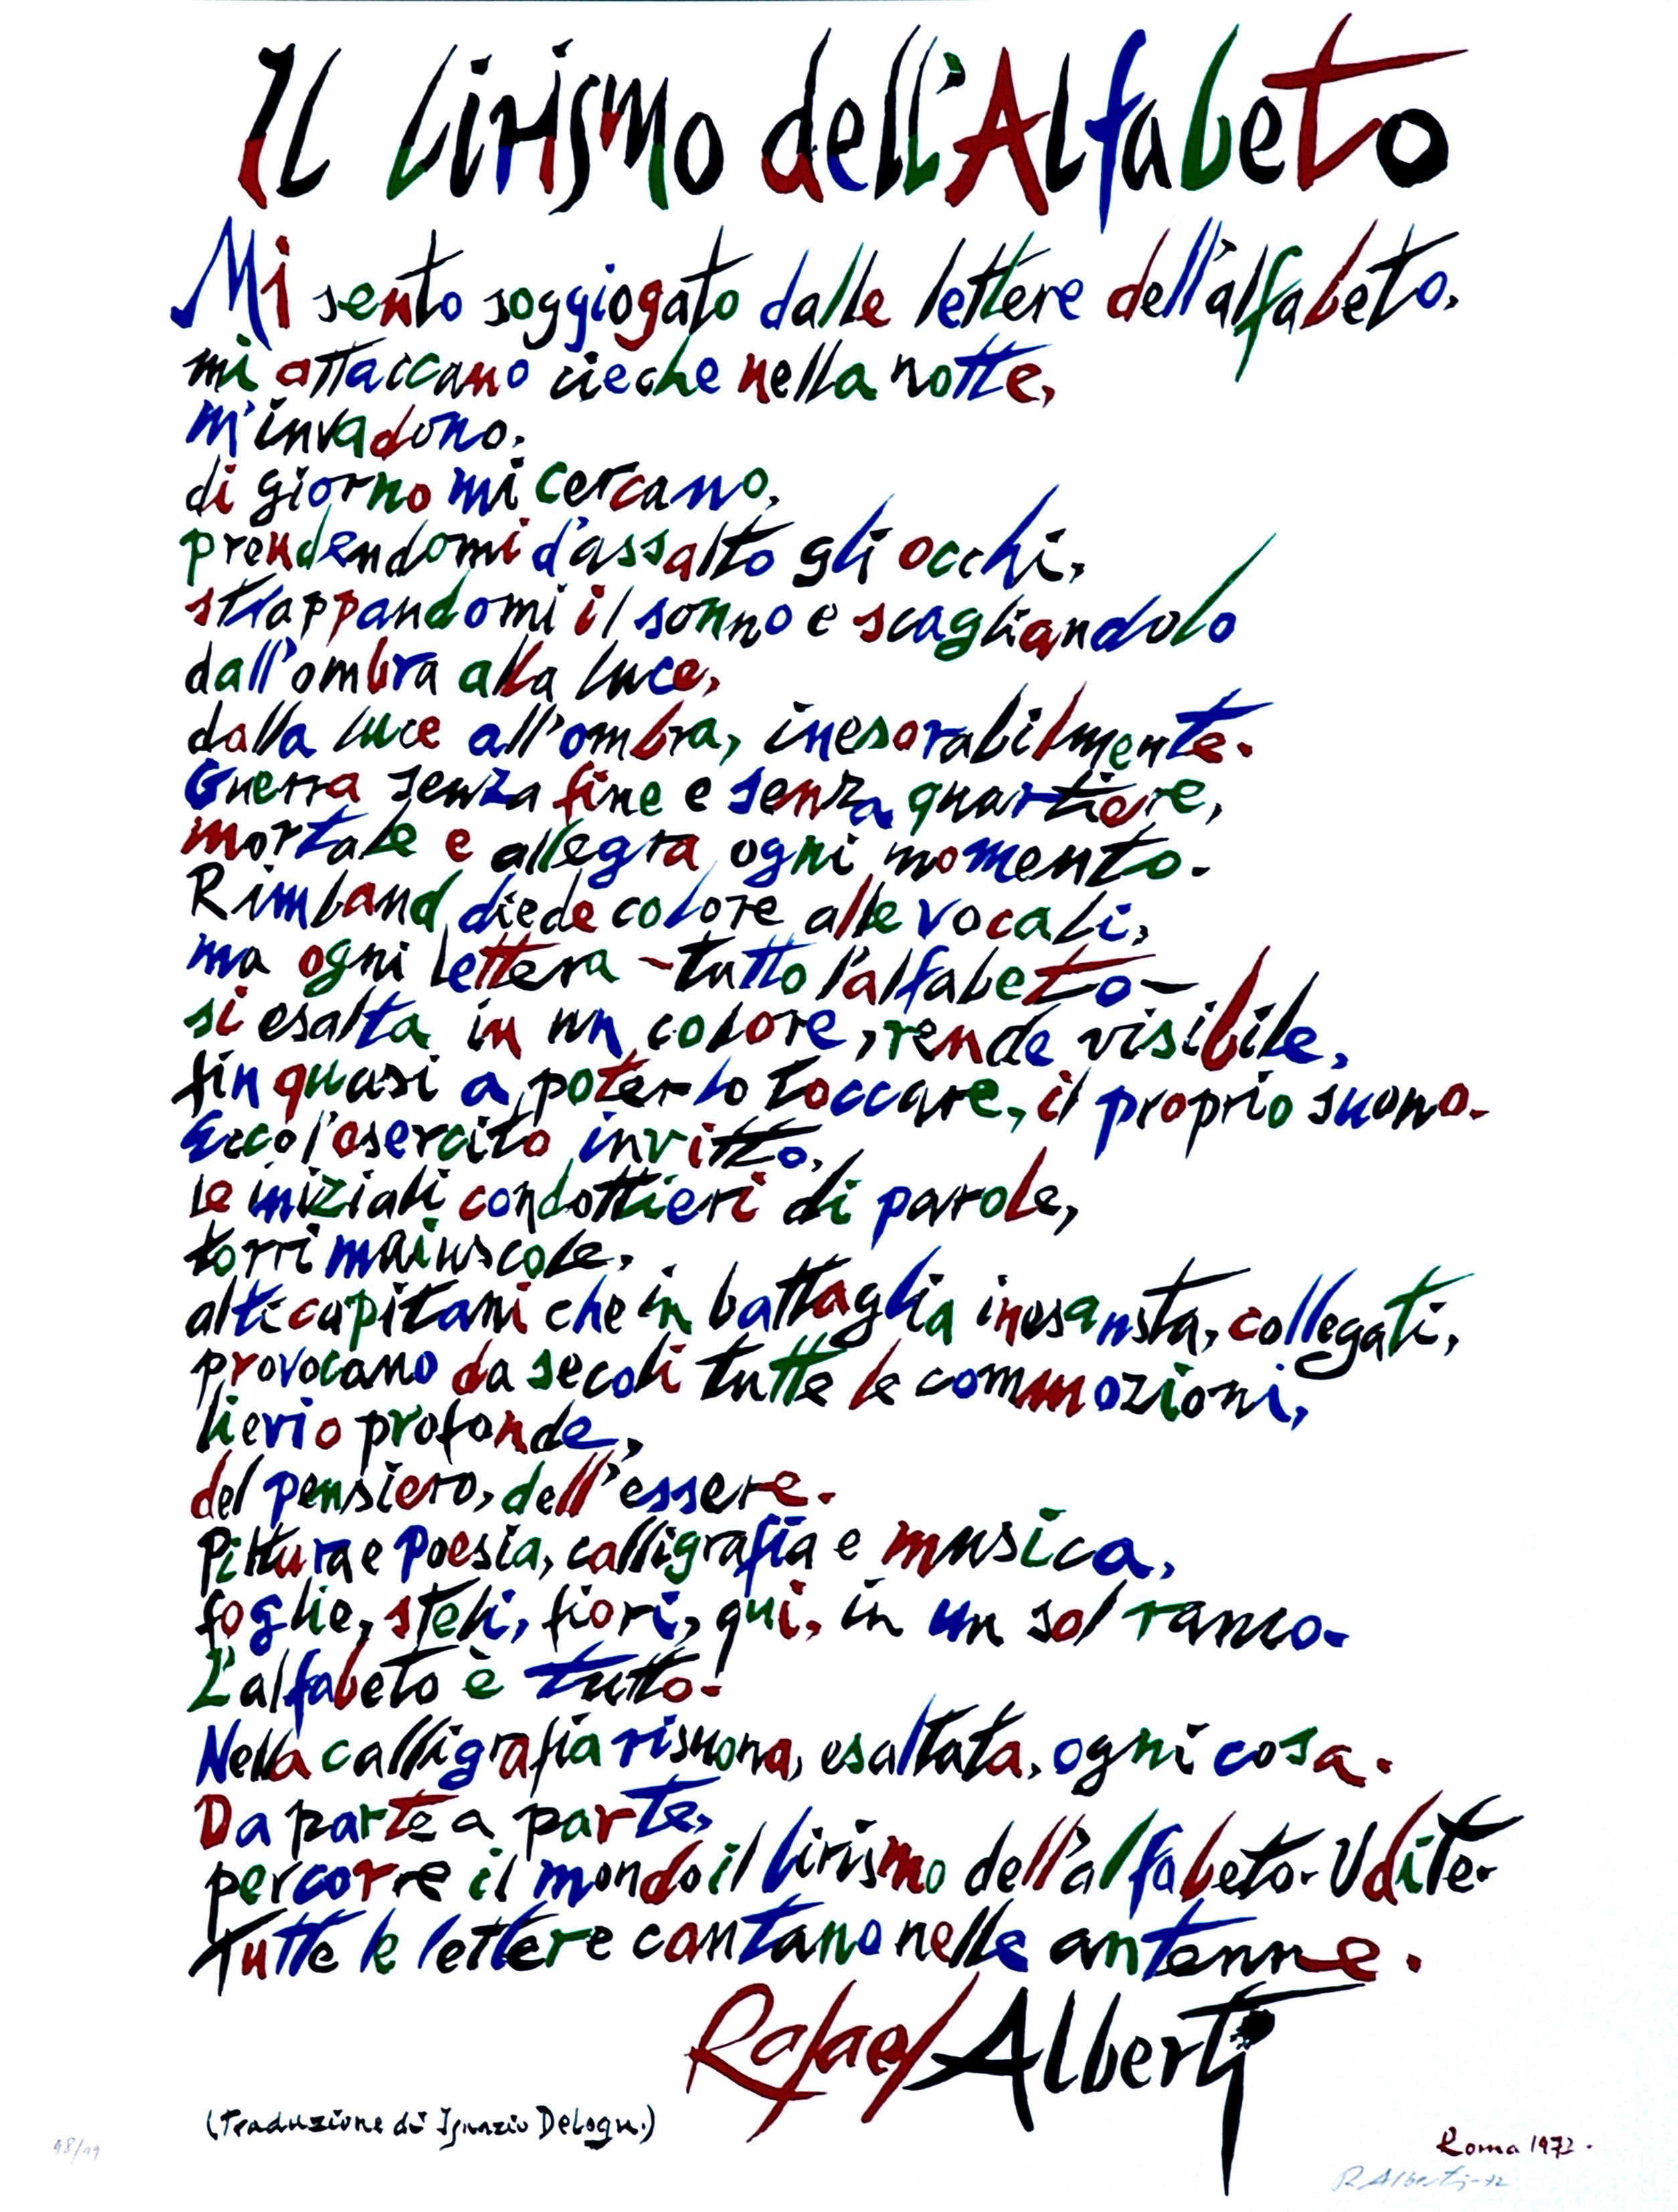 Il Lirismo dell'Alfabeto
Mi sento soggiogato dalle lettere dell'alfabeto.
mi attaccano cieche nella notte,
m'invadono.
di giorno mi cercano,
prendendomi d'assalto gli occhi,
strappandomi il sonno e scagliandolo
dall'ombra alla luce,
dalla luce all'ombra, inesorabilmente.
Guerra senza fine e senza quartiere,
mortale e allegra ogni momento.
Rimbaud diede colore alle vocali,
ma ogni lettera - tutto l'alfabeto -
si esalta in un colore, rende visibile,
fin quasi a poterlo toccare, il proprio suono.
Ecco l'esercito invitto,
le iniziali condottieri di parole,
torri maiuscole,
alti capitani che in battaglia inesausta, collegati,
provocano da secoli tutte le commozioni,
lievi o profonde,
del pensiero, dell'essere.
Pittura e Poesia, calligrafia e musica,
foglie, steli, fiori, qui, in un sol ramo.
L'alfabeto è tutto!
Nella calligrafia risuona, esaltata, ogni cosa.
Da parte a parte,
percorre il mondo il lirismo dell'alfabeto. Udite.
Tutte le lettere cantano nelle antenne.
Rafael Alberti
(Traduzione di Ignazio Delogu.)
98/99
Roma 1972.
R Alberti-72